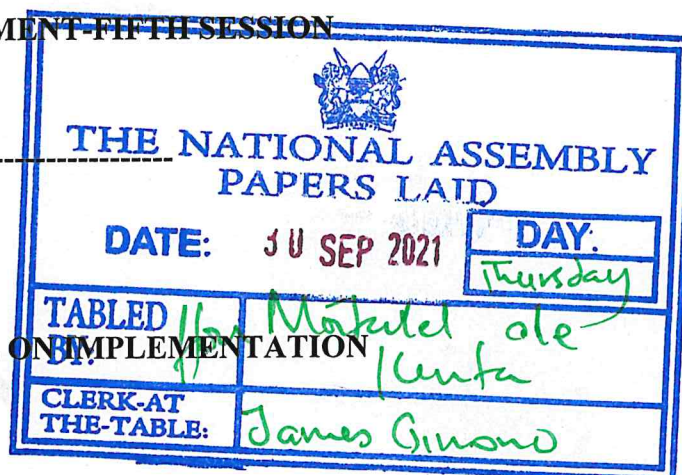 MENT-FIFTH SESSION
THE NATIONAL ASSEMBLY
PAPERS LAID
DATE: 30 SEP 2021
DAY:
Thursday
TABLED BY: Hon ole
ON IMPLEMENTATION
CLERK-AT THE-TABLE: James